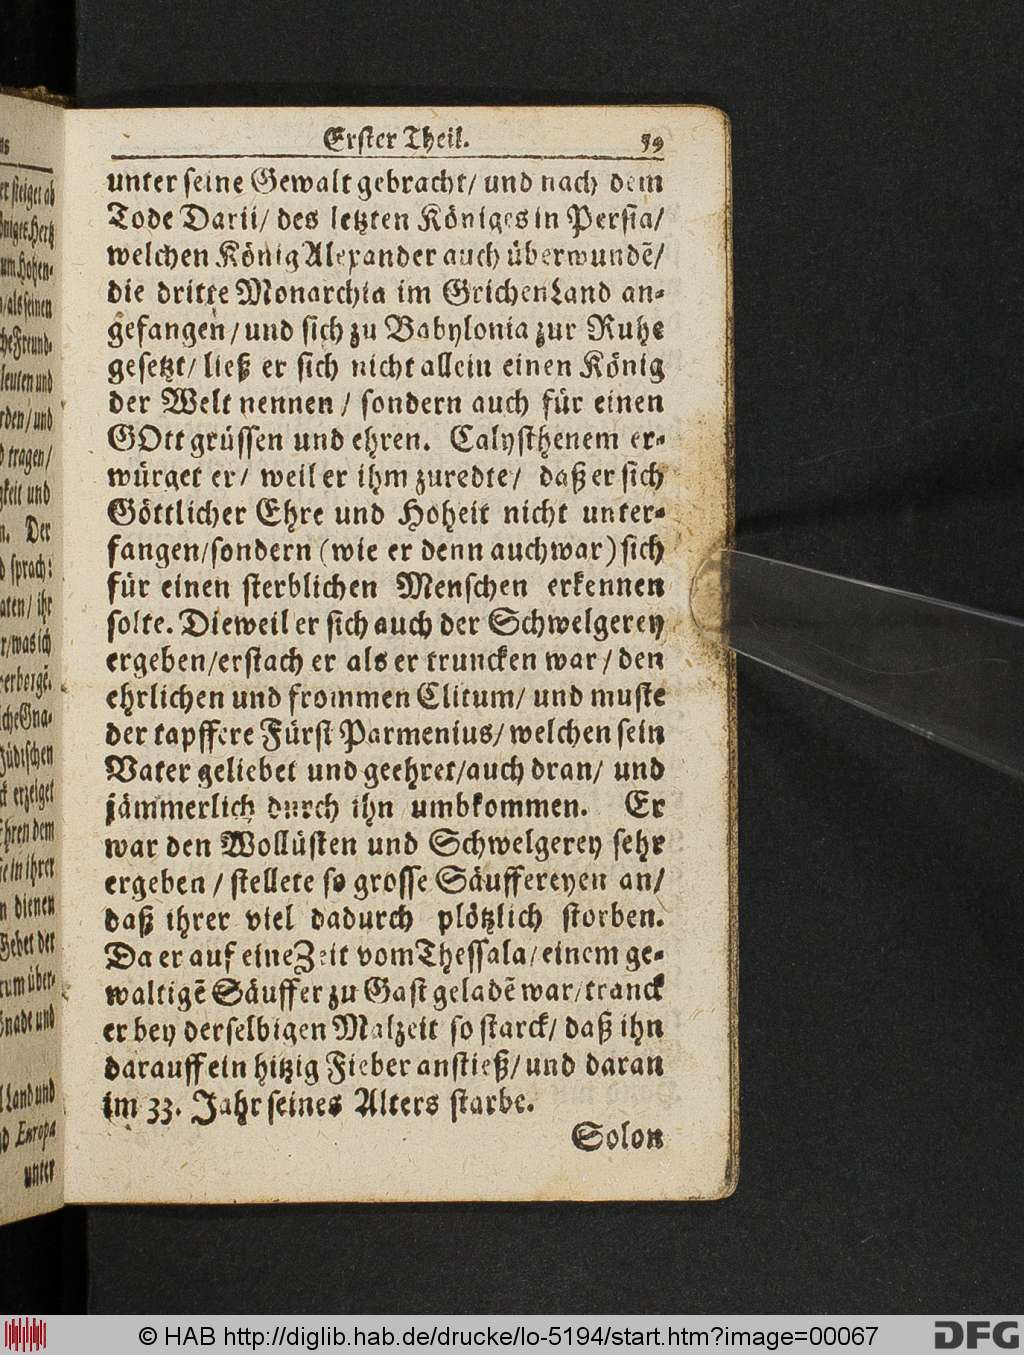 Erster Theil. 59
unter seine Gewalt gebracht/ und nach dem
Tode Darii/ des letzten Königes in Persia/
welchen König Alexander auch überwundẽ/
die dritte Monarchia im GrichenLand an-
gefangen/ und sich zu Babylonia zur Ruhe
gesetzt/ ließ er sich nicht allein einen König
der Welt nennen/ sondern auch für einen
GOtt grüssen und ehren. Calysthenem er-
würget er/ weil er ihm zuredte/ daß er sich
Göttlicher Ehre und Hoheit nicht unter-
fangen/ sondern (wie er denn auch war) sich
für einen sterblichen Menschen erkennen
solte. Dieweil er sich auch der Schwelgerey
ergeben/ erstach er als er truncken war/ den
ehrlichen und frommen Clitum/ und muste
der tapffere Fürst Parmenius/ welchen sein
Vater geliebet und geehret/ auch dran/ und
jämmerlich durch ihn umbkommen. Er
war den Wollüsten und Schwelgerey sehr
ergeben/ stellete so grosse Säuffereyen an/
daß ihrer viel dadurch plötzlich storben.
Da er auf eine Zeit vom Thessala/ einem ge-
waltigẽ Säuffer zu Gast geladẽ war/ tranck
er bey derselbigen Malzeit so starck/ daß ihn
darauff ein hitzig Fieber anstieß/ und daran
im 33. Jahr seines Alters starbe.
Solon
er steiget ab
um Hohen-
/als seinen
he Freund-
leuten und
rden/ und
tragen/
gkeit und
n. Der
d sprach:
aten/ ihr
r/ was ich
che Gna-
Jüdischen
ck erzeiget
Ehren dem
ie in ihrer
n dienen
Gebet der
rum über-
Gnade und
Land und
nd Europa
unter
© HAB http://diglib.hab.de/drucke/lo-5194/start.htm?image=00067
DFG